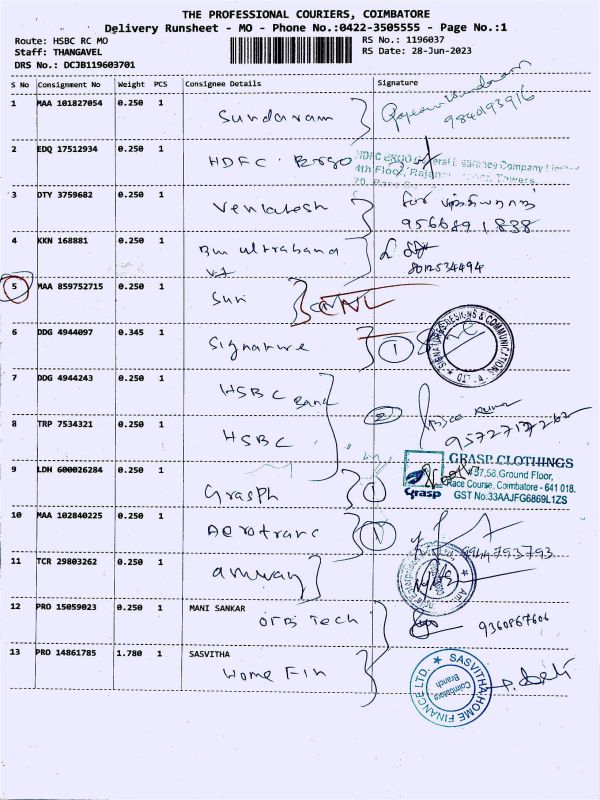 THE PROFESSIONAL COURIERS, COIMBATORE
Delivery Runsheet - MO - Phone No.:0422-3505555 - Page No.:1
Route: HSBC RC MO
RS No.: 1196037
Staff: THANGAVEL
RS Date: 28-Jun-2023
DRS No.: DCJB119603701
S No Consignment No Weight PCS Consignee Details Signature
1 MAA 101827054 0.250 1 Sundaram
2 EDQ 17512934 0.250 1 HDFC. Ergo
HDFC ERGO General Insurance Company
4th Floor, Towers
3 DTY 3759682 0.250 1 Venkatesh
9566891838
4 KKN 168881 0.250 1 Bm ultraband
8012534494
5 MAA 859752715 0.250 1 Sun CNL
6 DDG 4944097 0.345 1 Signature 1
SIGNATURES DESIGNS & COMMUNICATION
7 DDG 4944243 0.250 1 HSBC Bank
8 TRP 7534321 0.250 1 HSBC 2
9 LDH 600026284 0.250 1 Grasph 1
GRASP CLOTHINGS
Grasp
#37,58, Ground Floor,
Race Course, Coimbatore - 641 018.
GST No:33AAJFG6869L1ZS
10 MAA 102840225 0.250 1 Aerotrans 1
11 TCR 29803262 0.250 1 amway
12 PRO 15059023 0.250 1 MANI SANKAR
Orbs Tech
9360867606
13 PRO 14861785 1.780 1 SASVITHA
Home Fin
SASVITHA HOME FINANCE LTD.
Coimbatore
Branch